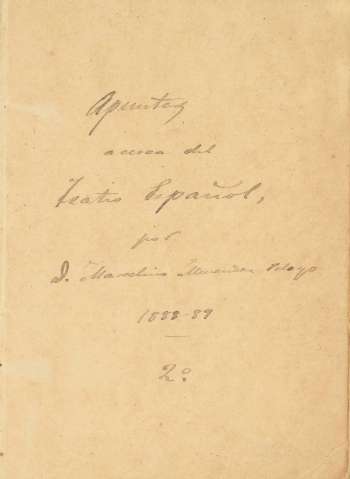 Apuntes
acerca del
Teatro Español,
por
D. Marcelino Menendez Pelayo
1888-89
2º